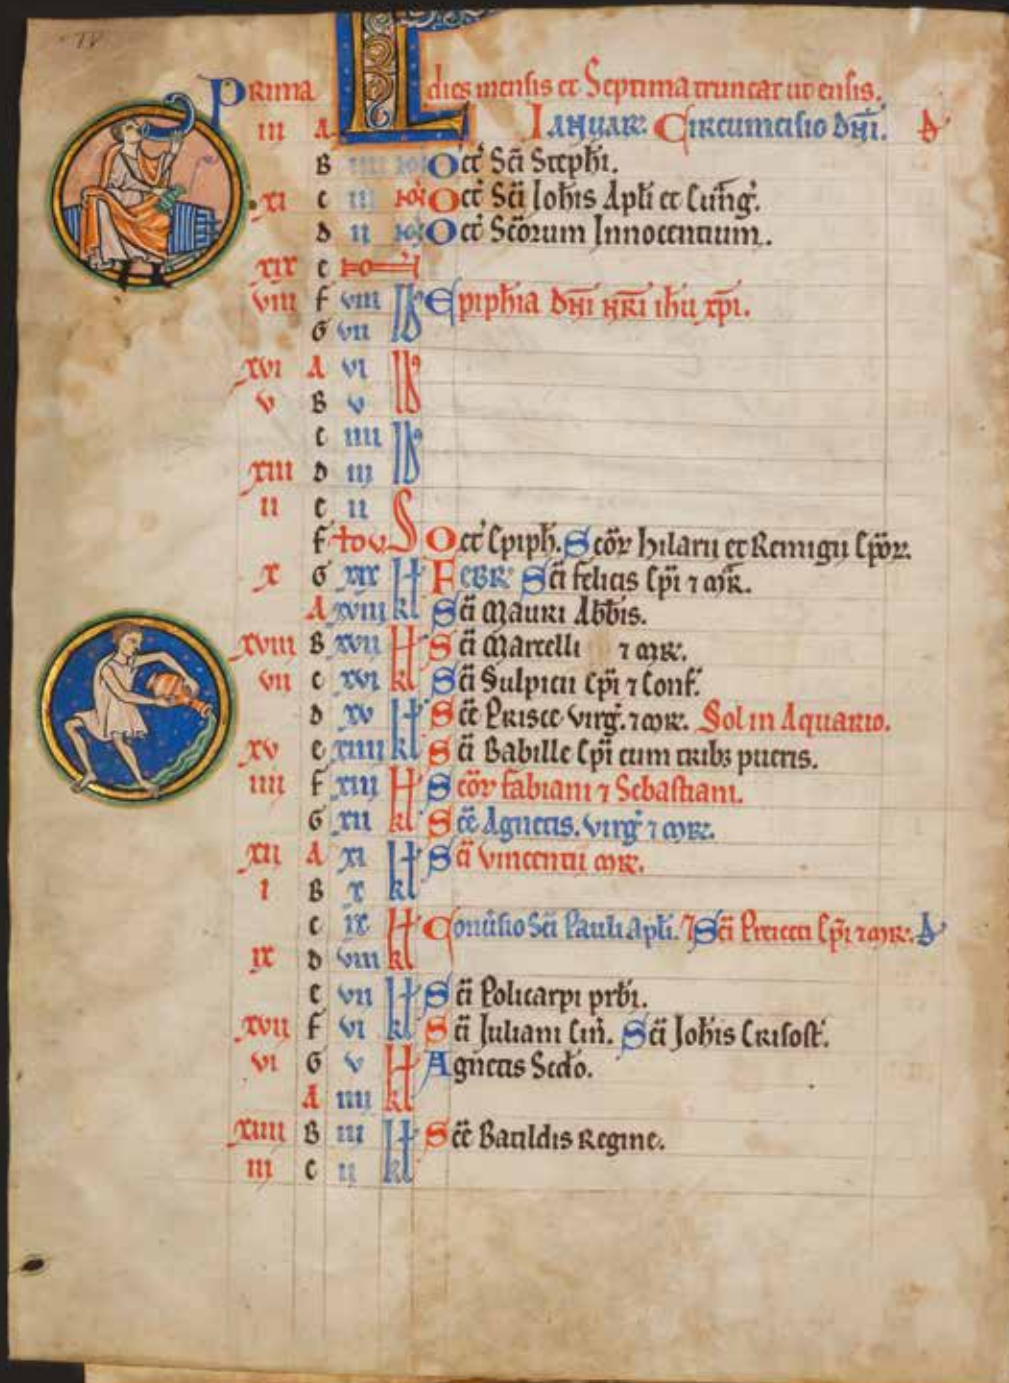 Prima dies mensis et Septima truncat ut ensis.
iii A KL Ianuar. Circumcisio dñi. D
B iiii No Oct̓ Sc̃i Steph̃i.
xi c iii No Oct̓ Sc̃i Ioh̃is Apl̃i et Euñg̓.
D ii No Oct̓ Sc̃orum Innocentium.
xix e No
viii f viii Id Epiph̃ia dñi nr̃i ih̃u xp̃i.
G vii
xvi A vi Id
v B v
c iiii Id
xiii D iii
ii e ii
f Oct̓ Epiph̃. Sc̃or̃ hilarii et Remigii Ep̃or̃.
x G xix kl Febr̃ Sc̃i felicis Ep̃i ⁊ mr̃.
A xviii kl Sc̃i Mauri Abb̃is.
xviii B xvii kl Sc̃i Marcelli ⁊ mr̃.
vii c xvi kl Sc̃i Sulpicii Ep̃i ⁊ Conf̃.
D xv kl Sc̃e Prisce virg̃. ⁊ mr̃. Sol in Aquario.
xv e xiiii kl Sc̃i Babille Ep̃i cum trib; pueris.
iiii f xiii kl Sc̃or̃ fabiani ⁊ Sebastiani.
G xii kl Sc̃e Agnetis. virg̃ ⁊ mr̃.
xii A xi kl Sc̃i vincentii mr̃.
i B x kl
c ix kl Conũsio Sc̃i Pauli apl̃i. ⁊ Sc̃i Preiecti Ep̃i ⁊ mr̃. D
ix D viii kl
e vii kl Sc̃i Policarpi prb̃i.
xvii f vi kl Sc̃i Iuliani Em̃. Sc̃i Joh̃is Crisost̃.
vi G v kl Agnetis Sec̃do.
A iiii kl
xiiii B iii kl Sc̃e Batildis Regine.
iii c ii kl